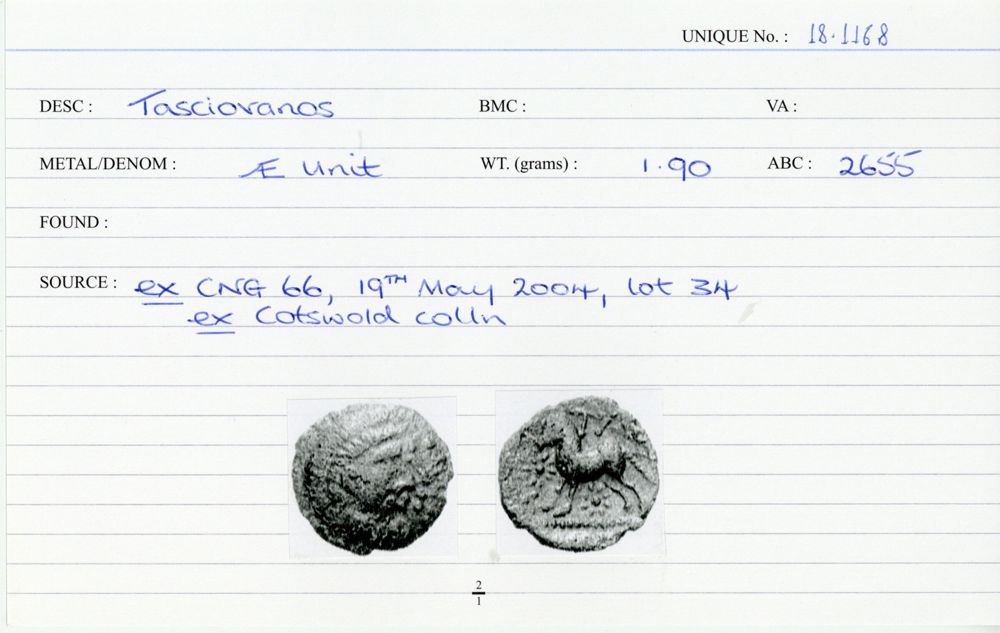 UNIQUE No. : 18.1168
DESC : Tasciovanos BMC : VA :
METAL/DENOM : Æ Unit WT. (grams) : 1.90 ABC : 2655
FOUND :
SOURCE : ex CNG 66, 19TH May 2004, lot 34
ex Cotswold colln
2
1